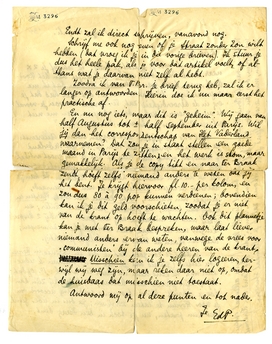 Eindt zal ik direct schrijven, vanavond nog.
Schrijf me ook nog even of je Straat zonder Zon wilt
hebben (dat vroeg ik je in de vorige brieven). Ik stuur je
dus het heele pak, als je voor dat artikel voelt, of al-
thans wat je daarvan niet zelf al hebt.
Zoodra ik van P.Pr. je brief terug heb, zal ik er
langer op antwoorden. Hierin doe ik nu maar eerst het
practische af.
En nu nog iets, maar dit is "geheim". Wij gaan van
half Augustus tot half September uit Parijs. Wil
jij dan het correspondentschap van Het Vaderland
waarnemen? Dat zou je in staat stellen een gaeke
maand in Parijs te zitten en het werk is
gemakkelijk. Als je de copy tikt en naar ter Braak
zendt hoeft zelfs niemand anders te weten dat jij
het bent. Je krijgt hiervoor fl. 10.- per kolom, en
zou dus 80 à 90 pop kunnen verdienen; bovendien
kan ik je dit geld voorschieten, zoodat je er niet
van de krant op hoeft te wachten. Ook dit plannetje
kan je met ter Braak bespreken, maar laat liever
niemand anders ervan weten, vanwege de vrees voor
"communisten" bij de andere heeren van de krant.
Misschien kan ik je zelfs hier logeeren, ter-
wijl wij weg zijn, maar zeker daar niet op, omdat
de huisbaas dat misschien niet toestaat.
Antwoord mij op al deze punten en tot nader.
Je
EdP.